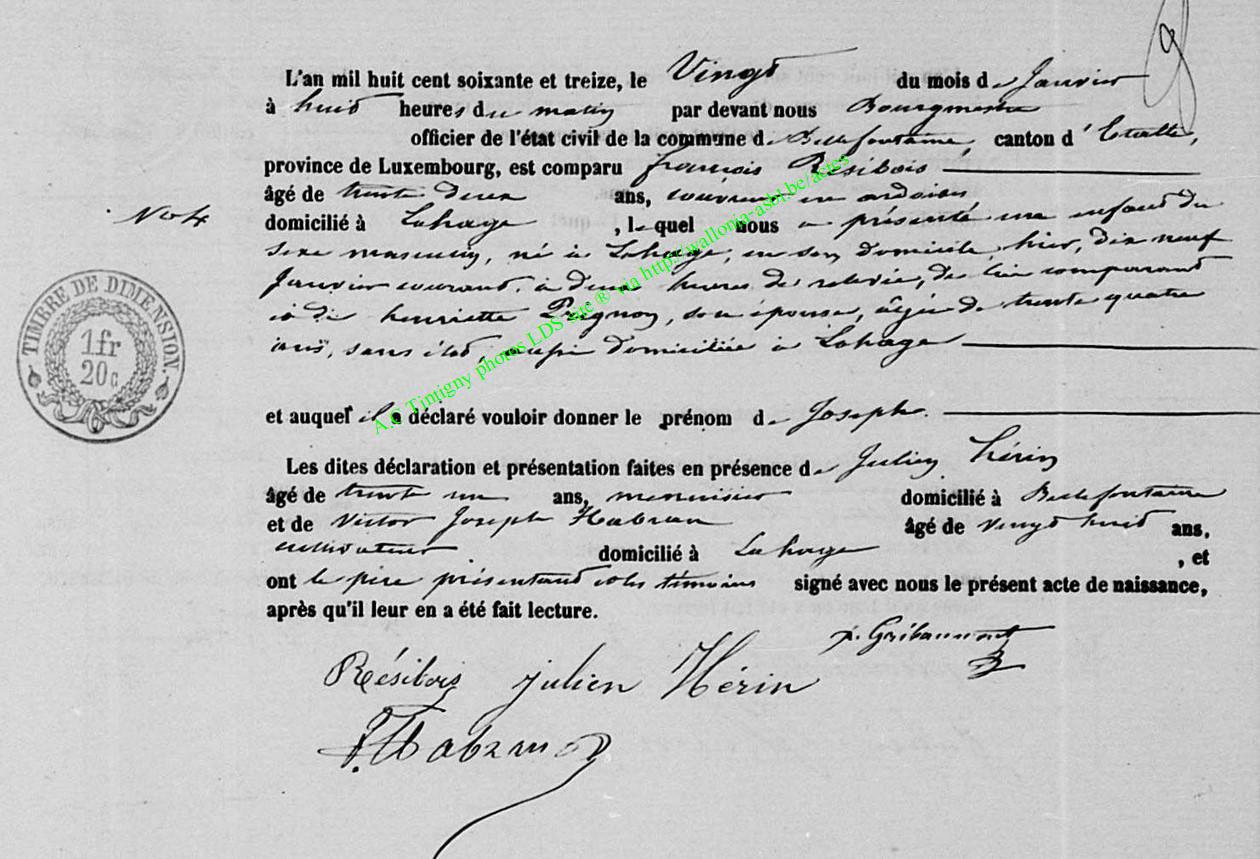 L'an mil huit cent soixante et treize, le Vingt du mois de Janvier
à huit heures du matin par devant nous Bourgmestre
officier de l'état civil de la commune de Bellefontaine, canton d'Etalle,
province de Luxembourg, est comparu françois Résibois
âgé de trente deux ans, couvreur en ardoises
No 4
domicilié à Lahage, lequel nous a présenté un enfant du
sexe masculin, né à Lahage, en son domicile, hier, dix neuf
Janvier courant, à deux heures de relevée, de lui comparant
& de henriette Prignon, son épouse, âgée de trente quatre
ans, sans état, aussi domiciliée à Lahage
TIMBRE DE DIMENSION.
1 fr
20 c
et auquel il a déclaré vouloir donner le prénom de Joseph.
Les dites déclaration et présentation faites en présence de Julien Hérin
âgé de trente un ans, menuisier domicilié à Bellefontaine
et de Victor Joseph Habran âgé de vingt huit ans,
cultivateur domicilié à Lahage, et
ont le père présentant & les témoins signé avec nous le présent acte de naissance,
après qu'il leur en a été fait lecture.
Gribaumont
Résibois Julien Hérin
Habran
A.C Tintigny photos LDS site ® via http://wallonia-asbl.be/actes